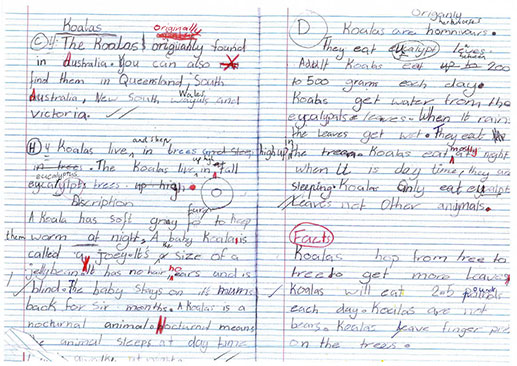 Koalas
originally
C The Koalas origianly found
in Australia. You can also
find them in Queensland, South
Australia, New South Wales and
Victoria.
and sleep
H Koalas live in trees and sleep high up
in trees. The Koalas live in tall
eucalyptus
trees up high.
Discription
A Koala has soft gray to keep
them worm at night. A baby Koala is
called a joey. Its the size of a
jellybean. It has no hair no ears and is
blind. The baby stays on its mums
back for six months. A Koala is a
nocturnal animal. Nocturnal means
the animal sleeps at day time
D
Koalas are homnivors.
They eat leives.
Adult Koalas eat up to 200
to 500 grams each day.
Koalas get water from the
leaves. When it rain
the leaves get wet. They eat
the trees. Koalas eat mostly night
when it is day time, they are
sleeping. Koalas only eat
leaves not Other animals.
Facts
Koalas hop from tree to
tree to get more leaves
Koalas will eat 2.5 pounds
each day. Koalas are not
bears. Koalas leave finger
on the trees.